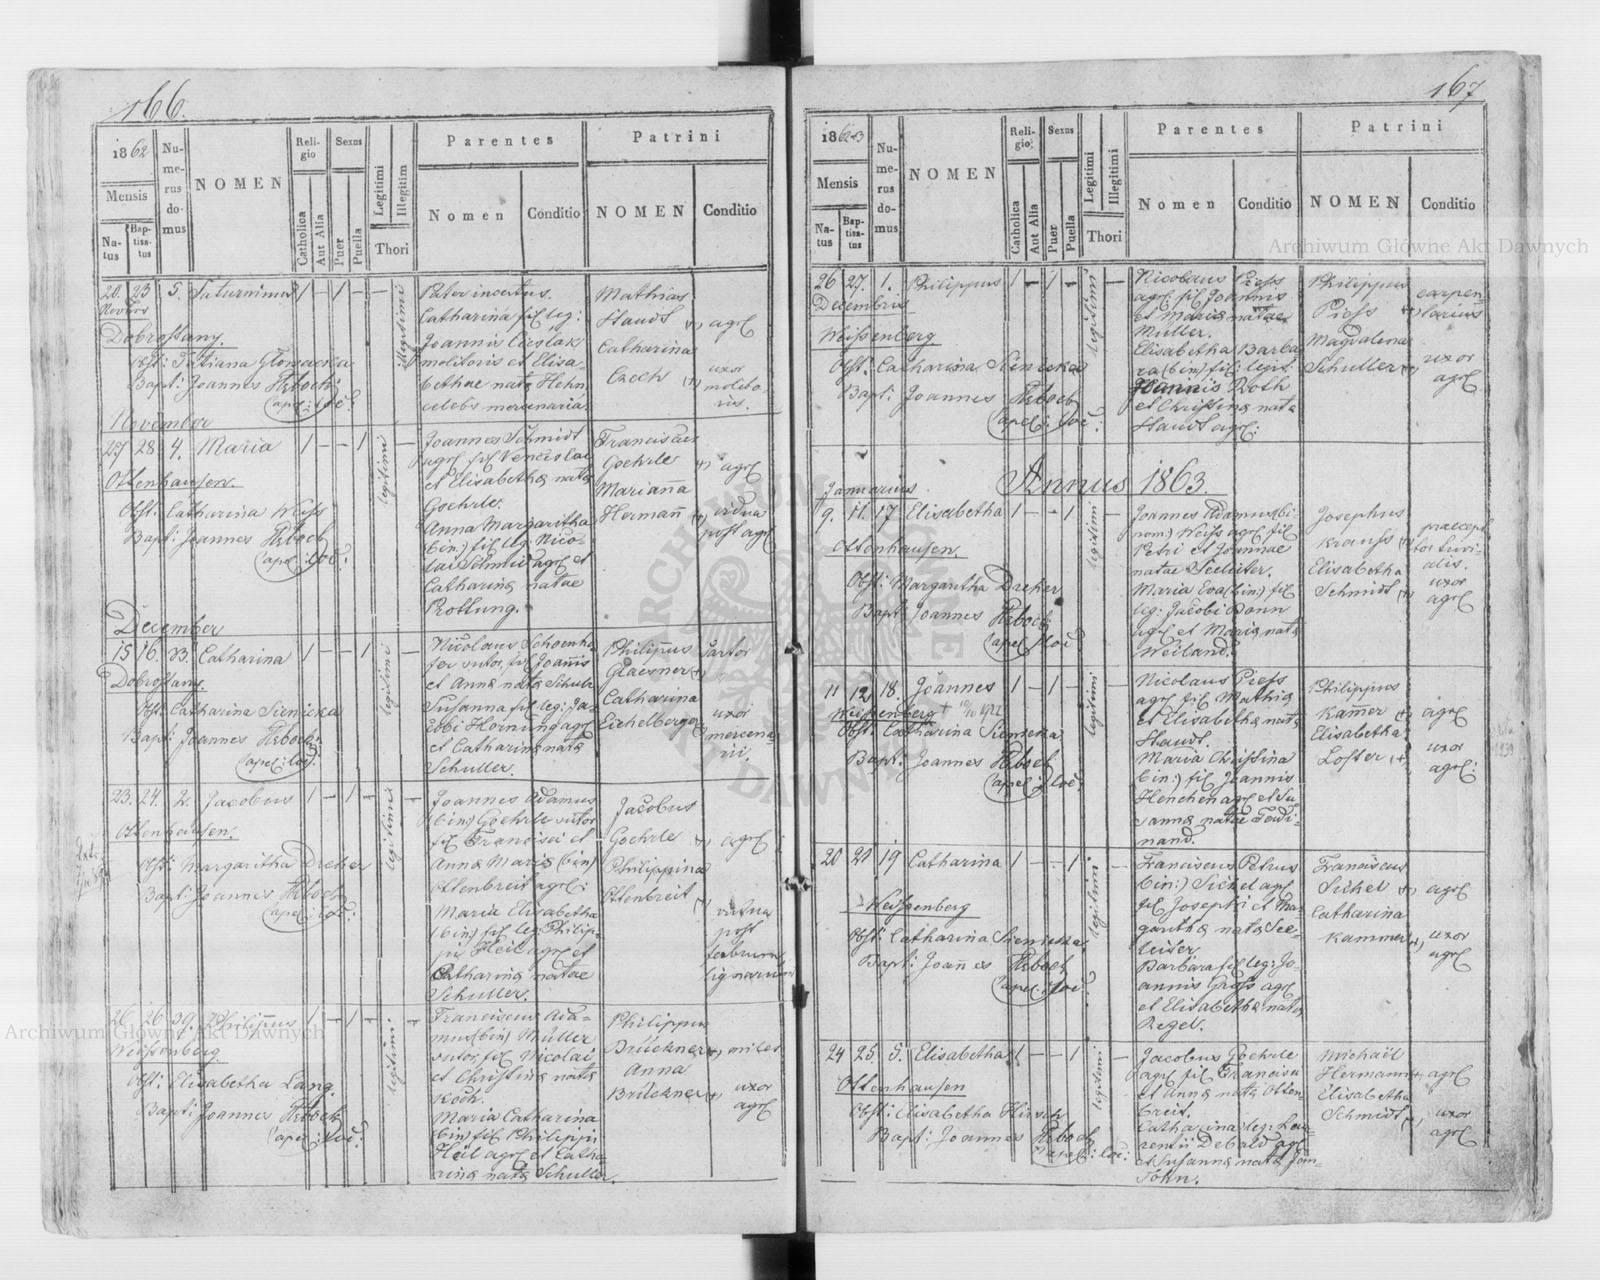 166.
1862
Mensis
Na-
tus
Bap-
tisa-
tus
Nu-
me-
rus
do-
mus
NOMEN
Reli-
gio
Catholica
Aut Alia
Sexus
Puer
Puella
Legitimi
Illegitim
Thori
Parentes
Nomen
Conditio
Patrini
NOMEN
Conditio
20. 23 5. Saturninus 1 — 1 — —
illegitimi
Dobrostany.
Obst: Tatiana
Bapt: Joannes Hrboch
Capel: loc:
Pater incertus.
Catharina fil leg:
Joannis Cieslak
molitoris et Elisa-
bethae nata Hehn
celebs mercenaria.
Mathias
Staudt (+) agrl
Catharina
Czech (+)
uxor
molito-
ris.
November
27 28 4. Maria 1 — — 1
legitimi
Ottenhausen.
Obst: Catharina Weiss
Bapt: Joannes Hrboch
Capel: loc:
Joannes Schmidt
agrl fil Venceslai
et Elisabetha nata
Goehrle.
Anna Margaritha
(bin:) fil leg: Nico-
lai Schmid agrl et
Catharina natae
Rottung.
Franciscus
Goehrle (+) agrl
Marianna
Hermann (+) vidua
post agrl
December
15 16. 33. Catharina 1 — — 1
legitimi
Dobrostany.
Obst: Catharina Sienicka
Bapt: Joannes Hrboch
Capel: loc:
Nicolaus Schoenho-
fer sutor, fil Joannis
et Anna nata Schulz
Susanna fil leg: Ja-
cobi Hornung agrl
et Catharina nata
Schuller.
Philippus
Glaesner (+)
sartor
Catharina
Eichelberger
uxor
mercena-
rii.
23. 24. 2. Jacobus 1 — 1 —
legitimi
Ottenhausen.
Obst: Margaritha Dreher
Bapt: Joannes Hrboch
Capel: loc:
Joannes Adamus
(bin) Goehrle sutor
fil Francisci et
Anna Maria (bin)
Ottenbreit agrl:
Maria Elisabetha
(bin) fil leg: Philip-
pi Heil agrl et
Catharina natae
Schuller.
Jacobus
Goehrle (+) agrl
Philippina
Ottenbreit (+)
vidua
post
fabrum
lignarium
26. 26 39. Philippus 1 — 1 —
legitimi
Weissenberg.
Obst: Elisabetha Lang
Bapt: Joannes Hrboch
Capel: loc:
Franciscus Ada-
mus (bin) Müller
sutor, fil Nicolai
et Christina nata
Koch.
Maria Catharina
(bin) fil Philippi
Heil agrl et Catha-
rina nata Schuller.
Philippus
Brückner (+) miles
Anna
Brückner (+) uxor
agrl
167
1862-3
Mensis
Na-
tus
Bap-
tisa-
tus
Nu-
me-
rus
do-
mus
NOMEN
Reli-
gio:
Catholica
Aut Alia
Sexus
Puer
Puella
Legitimi
Illegitimi
Thori
Parentes
Nomen
Conditio
Patrini
NOMEN
Conditio
26 27. 1. Philippus 1 — 1 —
legitimi
Decembris
Weissenberg
Obst: Catharina Sienicka
Bapt: Joannes Hrboch
Capel: loc:
Nicolaus Piess
agrl fil Joannis
et Maria natae
Müller.
Elisabetha Barba-
ra (bin) fil: legit:
Joannis Roth
et Christina nata
Staudt agrl:
Philippus
Piess (+)
carpen-
tarius
Magdalena
Schuller (+)
uxor
agrl
Annus 1863.
Januarius
9. 11. 17 Elisabetha 1 — — 1
legitimi
Ottenhausen.
Obst: Margaritha Dreher
Bapt: Joannes Hrboch
Capel: loci
Joannes Adamus (bi-
nom.) Weiss agrl fil
Petri et Joannae
natae Seeleiter.
Maria Eva (bin:) fil
leg: Jacobi Donn
agrl et Maria nata
Weiland.
Josephus
Krauss (+)
Elisabetha
Schmidt (+)
uxor
agrl
11 12 18. Joannes 1 — 1 —
legitimi
Weissenberg
Obst: Catharina Sienicka
Bapt: Joannes Hrboch
Capel: loc:
Nicolaus Piess
agrl fil Mathia
et Elisabetha nata
Staudt.
Maria Christina
(bin:) fil Joannis
Henchen agrl et Su-
sanna natae Ferdi-
nand.
Philippus
Kammer (+) agrl
Elisabetha
Loster (+)
uxor
agrl:
20 21 19 Catharina 1 — — 1
legitimi
Weissenberg
Obst: Catharina Sienicka
Bapt: Joannes Hrboch
Capel: loc:
Franciscus Petrus
(bin:) Sichel agrl
fil Josephi et Mar-
garitha nata See-
leiter
Barbara fil leg: Jo-
annis Piess agrl
et Elisabetha nata
Regel.
Franciscus
Sichel (+) agrl
Catharina
Kammer (+) uxor
agrl
24 25. 5. Elisabetha 1 — — 1
legitimi
Ottenhausen
Obst: Elisabetha Hirsch
Bapt: Joannes Hrboch
Capel: loc:
Jacobus Goehrle
agrl fil Francisci
et Anna nata Otten-
breit.
Catharina leg: Lau-
rentii Debald agrl
et Susanna nata
John.
Michaël
Hermann (+) agrl
Elisabetha
Schmidt (+) uxor
agrl
Archiwum Główne Akt Dawnych
Archiwum Główne Akt Dawnych
ARCHIWUM GŁÓWNE AKT DAWNYCH